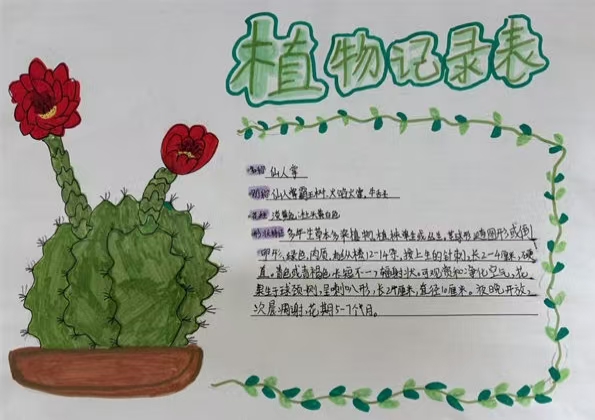 植物记录表
名称 仙人掌
别名 仙人掌霸王树、火焰、火掌、牛舌头
花色 淡黄色、红头黄白色
形状特征 多年生草本多浆植物,植株单生或丛生,茎球形,椭圆形或倒
卵形,绿色,肉质,有纵棱12-14条,棱上生的针刺,长2-4厘米,硬
直,黄色或黄褐色,长短不一,辐射状,可观赏和净化空气,花
生于球顶侧,呈喇叭形,长24厘米,直径10厘米。夜晚开放,
次晨凋谢,花期5-7个月。